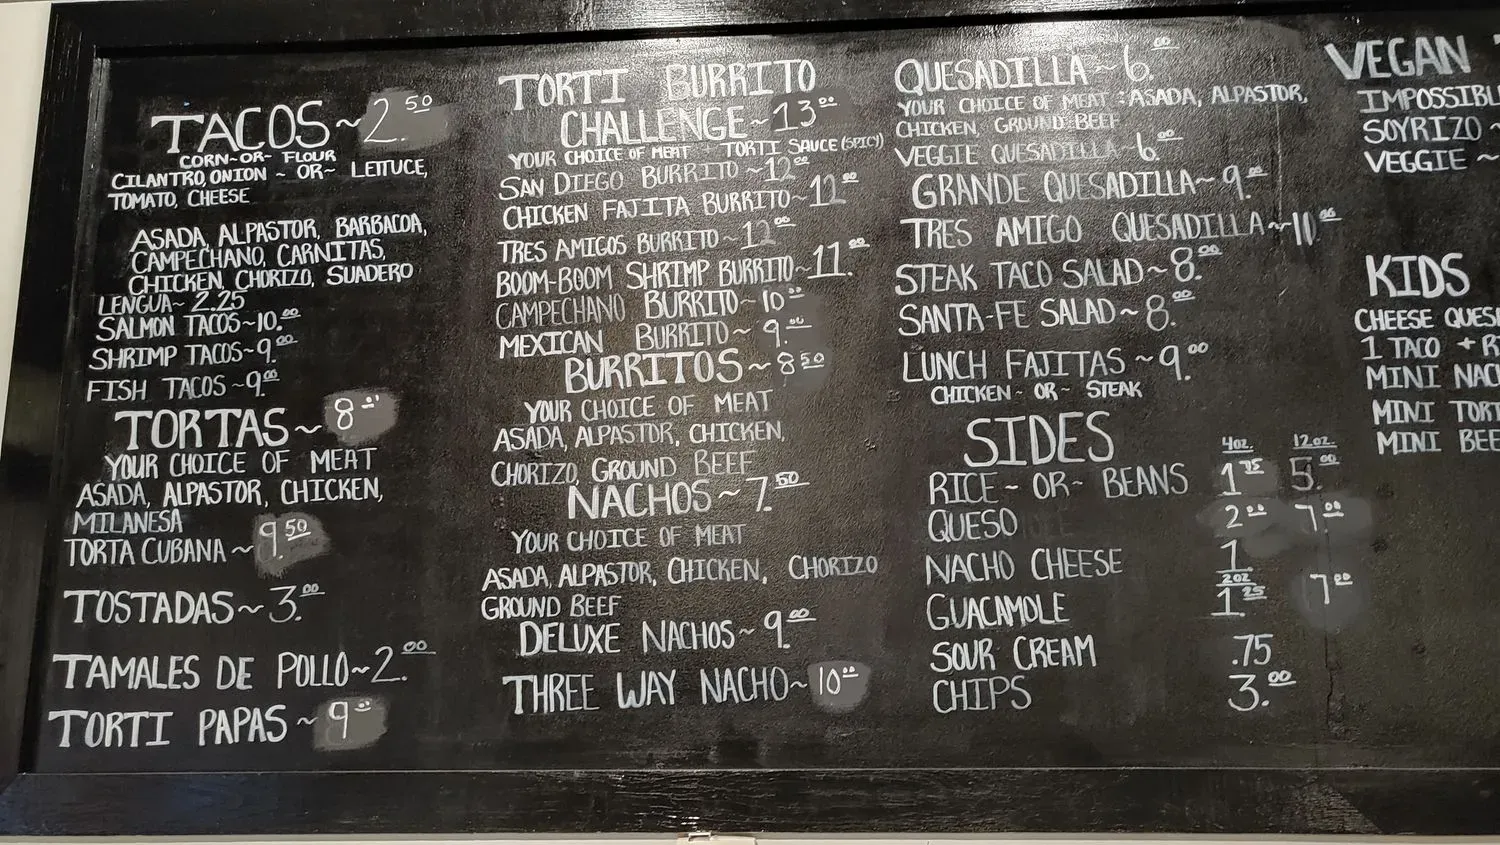 TACOS ~ 2.50
CORN-OR- FLOUR
CILANTRO, ONION ~ OR~ LETTUCE,
TOMATO, CHEESE
ASADA, ALPASTOR, BARBACOA,
CAMPECHANO, CARNITAS,
CHICKEN, CHORIZO, SUADERO
LENGUA~ 2.25
SALMON TACOS~10.00
SHRIMP TACOS~9.00
FISH TACOS ~9.00
TORTAS ~ 8.00
YOUR CHOICE OF MEAT
ASADA, ALPASTOR, CHICKEN,
MILANESA
TORTA CUBANA ~ 9.50
TOSTADAS~ 3.00
TAMALES DE POLLO~2.00
TORTI PAPAS ~ 9.00
TORTI BURRITO
CHALLENGE~13.00
YOUR CHOICE OF MEAT + TORTI SAUCE (SPICY)
SAN DIEGO BURRITO ~12.00
CHICKEN FAJITA BURRITO~12.00
TRES AMIGOS BURRITO~12.00
BOOM-BOOM SHRIMP BURRITO~11.00
CAMPECHANO BURRITO~ 10.00
MEXICAN BURRITO~ 9.00
BURRITOS~ 8.50
YOUR CHOICE OF MEAT
ASADA, ALPASTOR, CHICKEN,
CHORIZO, GROUND BEEF
NACHOS ~ 7.50
YOUR CHOICE OF MEAT
ASADA, ALPASTOR, CHICKEN, CHORIZO
GROUND BEEF
DELUXE NACHOS~ 9.00
THREE WAY NACHO~ 10.00
QUESADILLA~ 6.00
YOUR CHOICE OF MEAT : ASADA, ALPASTOR,
CHICKEN, GROUND BEEF
VEGGIE QUESADILLA~6.00
GRANDE QUESADILLA~ 9.00
TRES AMIGO QUESADILLA~10.00
STEAK TACO SALAD~ 8.00
SANTA-FE SALAD~ 8.00
LUNCH FAJITAS ~ 9.00
CHICKEN- OR~ STEAK
SIDES 4oz. 12oz.
RICE~ OR~ BEANS 1.75 5.00
QUESO 2.00 7.00
NACHO CHEESE 1.
GUACAMOLE 2oz 1.25 7.00
SOUR CREAM .75
CHIPS 3.00
VEGAN
IMPOSSIBL
SOYRIZO ~
VEGGIE ~
KIDS
CHEESE QUES
1 TACO + R
MINI NAC
MINI TORT
MINI BEE